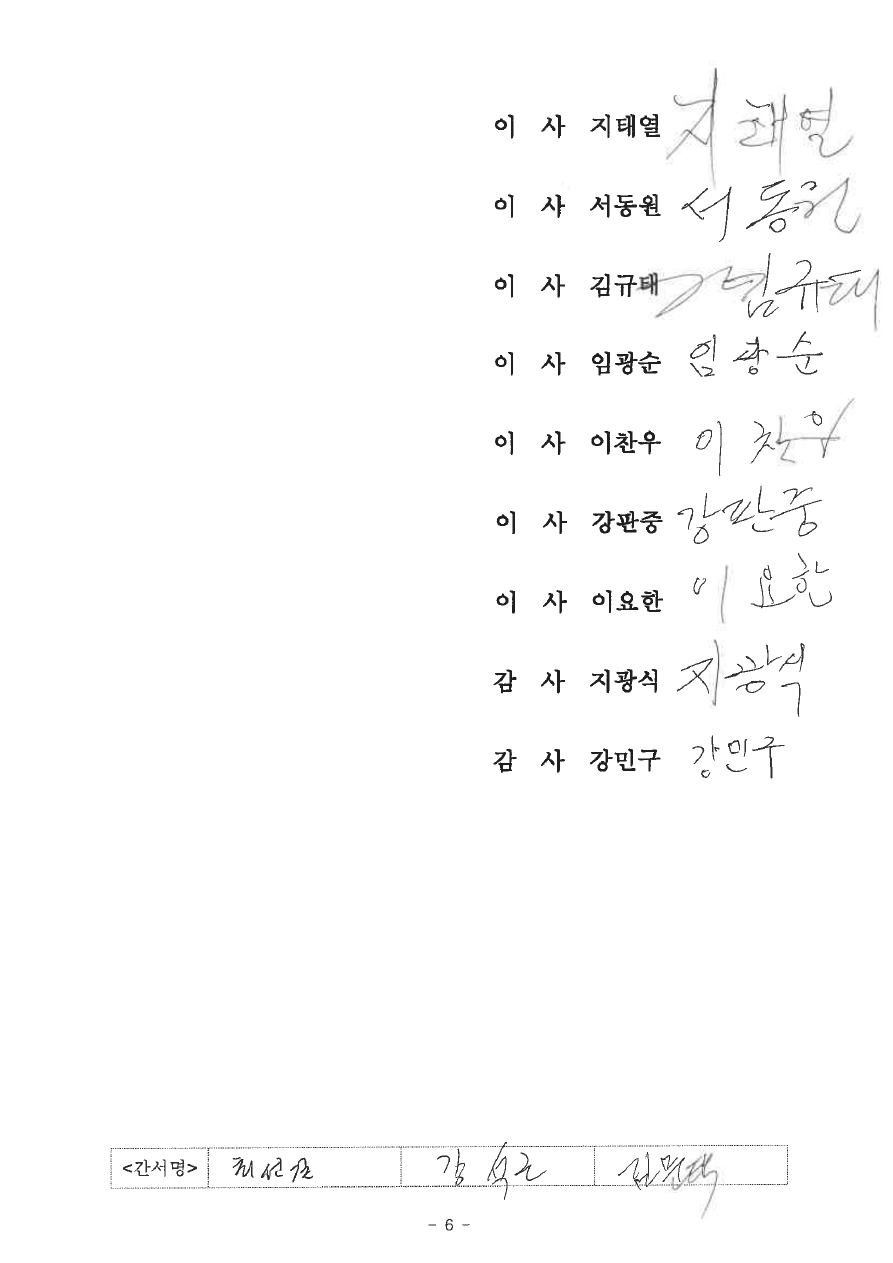 이 사 지태열 지태열
이 사 서동원 서동원
이 사 김규태 김규태
이 사 임광순 임광순
이 사 이찬우 이찬우
이 사 강판중 강판중
이 사 이요한 이요한
감 사 지광식 지광식
감 사 강민구 강민구
<간서명>
- 6 -